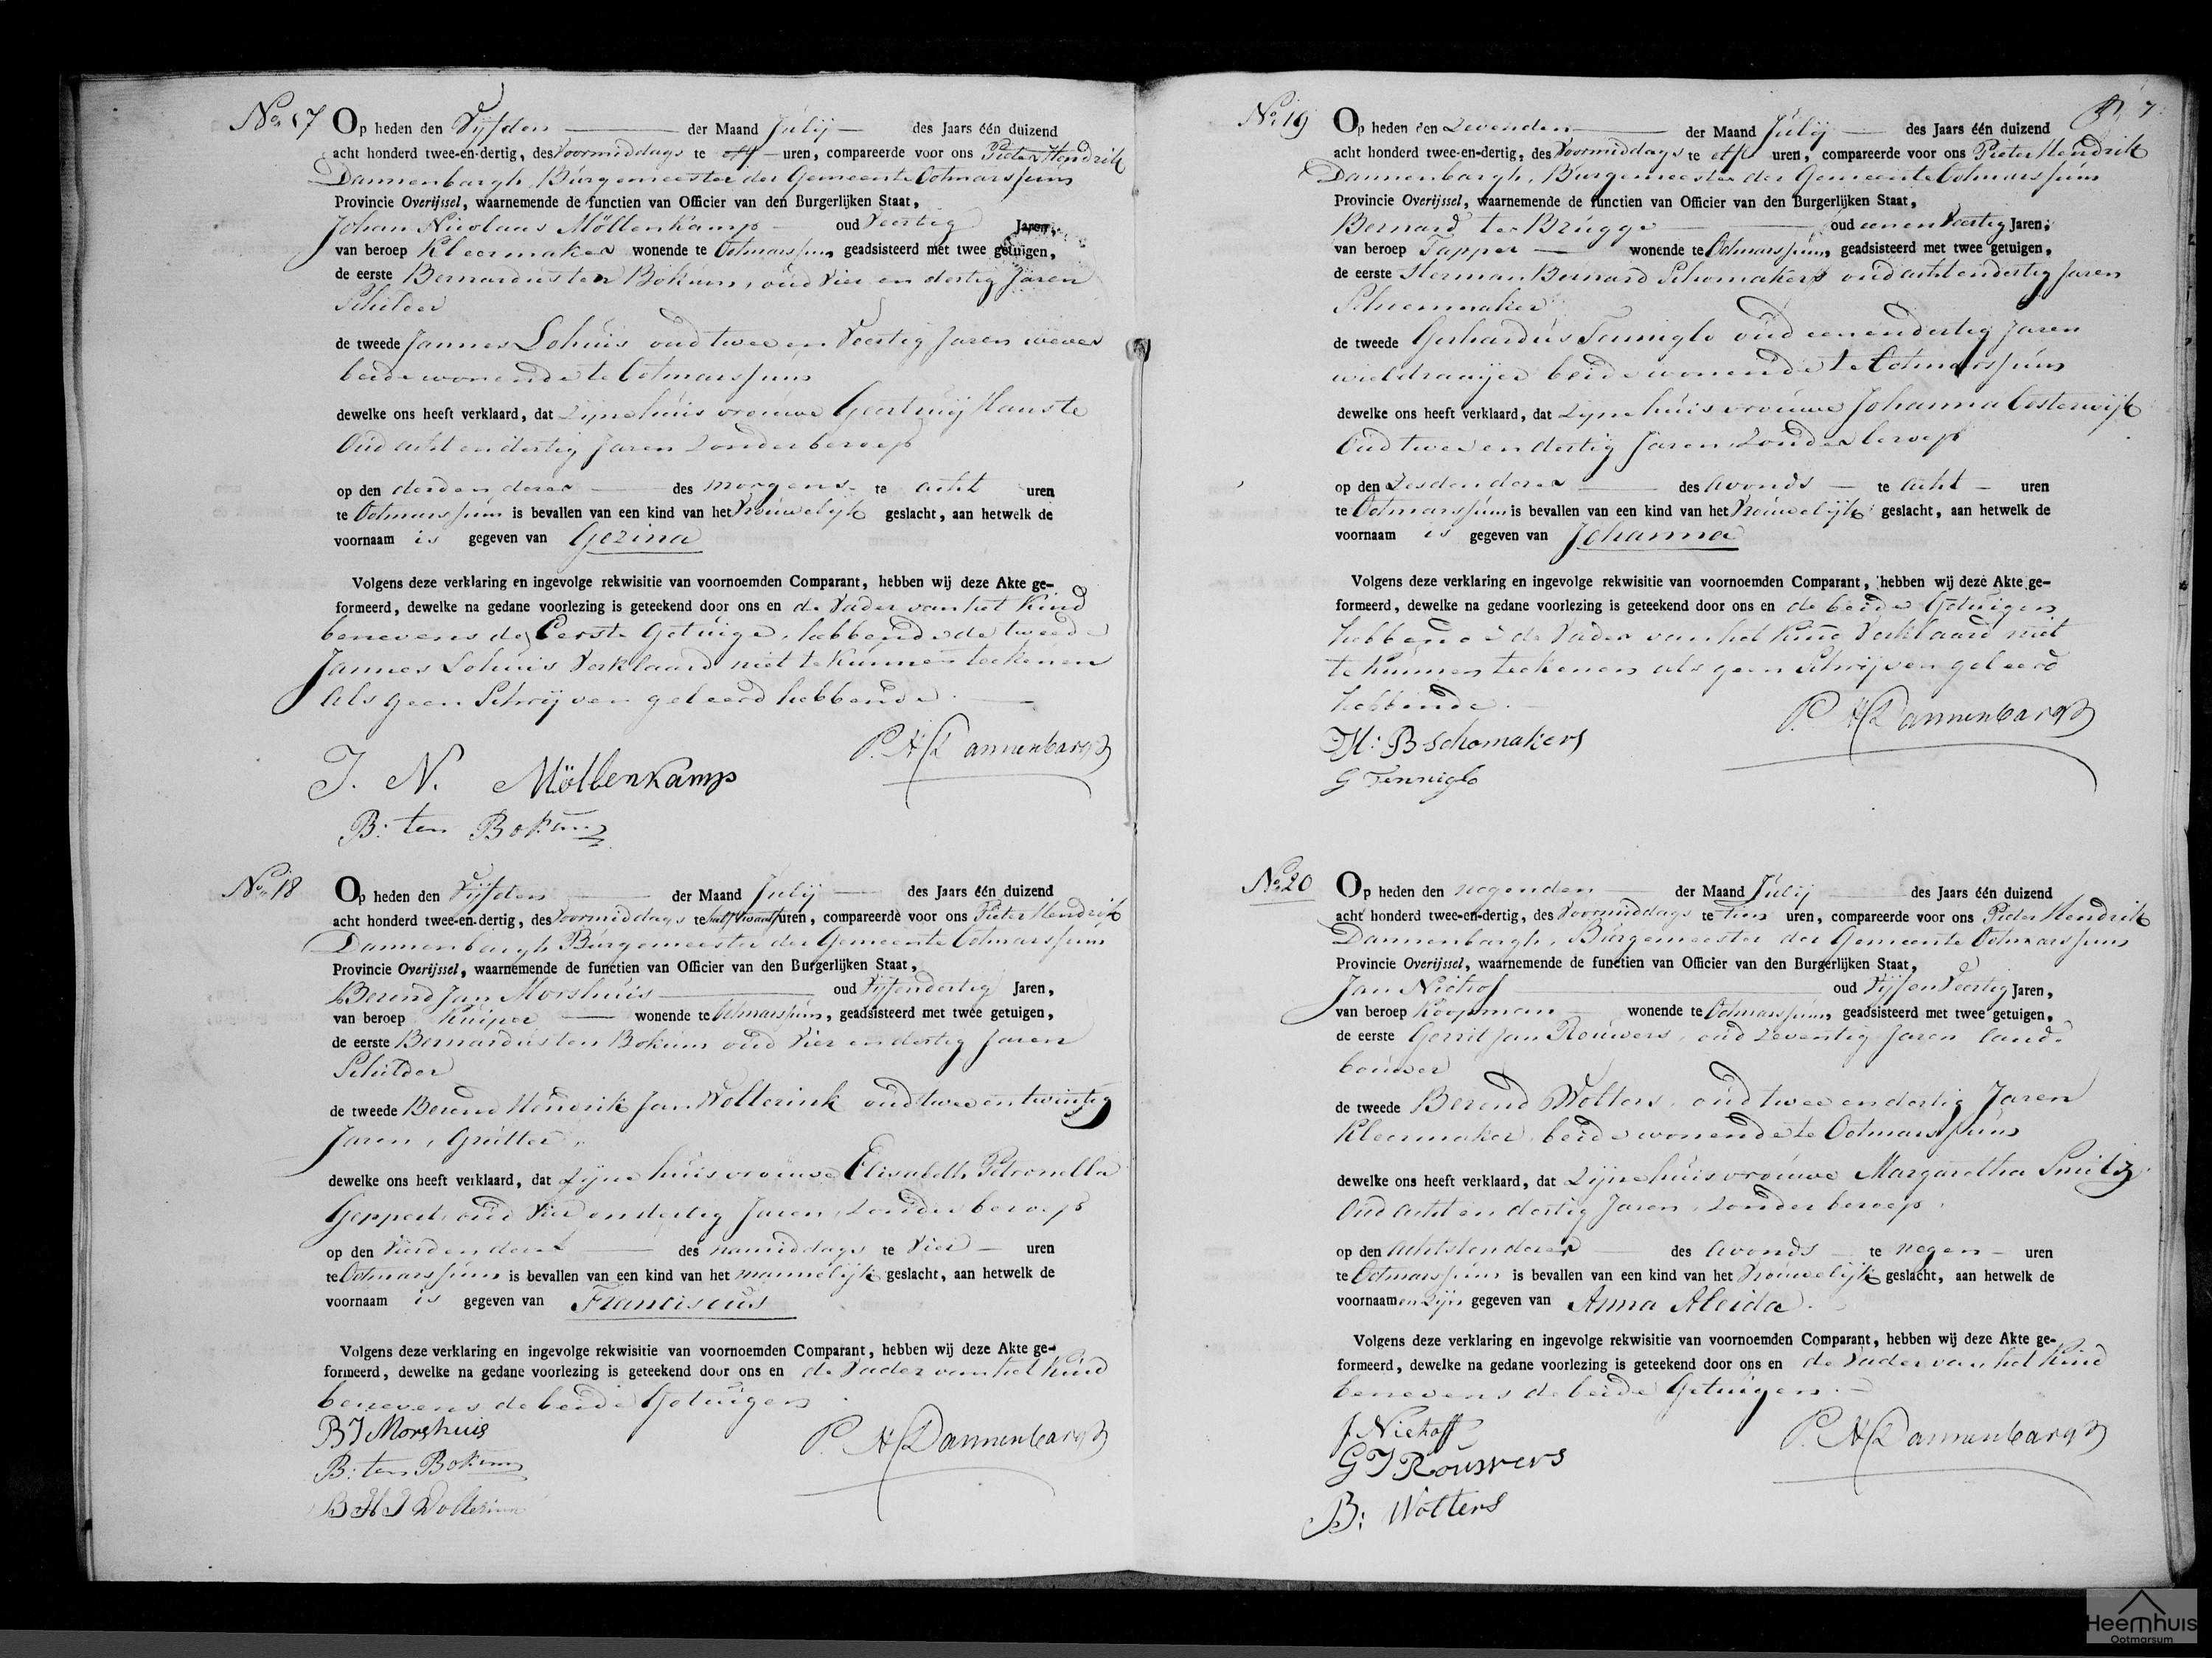 No. 17 Op heden den Vijfden der Maand Julij des Jaars één duizend
acht honderd twee-en-dertig, des Voormiddags te elf uren, compareerde voor ons Pieter Hendrik
Dannenbargh, Burgemeester der Gemeente Ootmarssum
Provincie Overijssel, waarnemende de functien van Officier van den Burgerlijken Staat,
Johan Nicolaas Möllenkamp oud Veertig Jaren,
van beroep Kleermaker wonende te Ootmarssum geadsisteerd met twee getuigen,
de eerste Bernardus ten Bokum, oud Vier en dertig Jaren
Schilder
de tweede Jannes Lohuis oud twee en Veertig Jaren wever
beide wonende te Ootmarssum
dewelke ons heeft verklaard, dat Zijne huisvrouwe Geertruij Hauste
Oud acht en dertig Jaren Zonder beroep
op den derden dezer des morgens te acht uren
te Ootmarssum is bevallen van een kind van het Vrouwelijk geslacht, aan hetwelk de
voornaam is gegeven van Gezina
Volgens deze verklaring en ingevolge rekwisitie van voornoemden Comparant, hebben wij deze Akte ge-
formeerd, dewelke na gedane voorlezing is geteekend door ons en de Vader van het Kind
benevens de Eerste Getuige, hebbende de tweede
Jannes Lohuis Verklaard niet te Kunnen teekenen
als geen Schrijven geleerd hebbende.
P. H. Dannenbargh
J. N. Möllenkamp
B: ten Bokum
No. 18 Op heden den Vijfden der Maand Julij des Jaars één duizend
acht honderd twee-en-dertig, des Voormiddags te half twaalf uren, compareerde voor ons Pieter Hendrik
Dannenbargh Burgemeester der Gemeente Ootmarssum
Provincie Overijssel, waarnemende de functien van Officier van den Burgerlijken Staat,
Berend Jan Morshuis oud Vijfendertig Jaren,
van beroep Kuiper wonende te Ootmarssum, geadsisteerd met twee getuigen,
de eerste Bernardus ten Bokum oud Vier en dertig Jaren
Schilder
de tweede Berend Hendrik Jan Wolterink oud twee en twintig
Jaren, Grutter
dewelke ons heeft verklaard, dat Zijne huisvrouwe Elisabeth Petronella
Geppert, oud Vier en dertig Jaren, Zonder beroep
op den Vierden dezer des namiddags te Vier uren
te Ootmarssum is bevallen van een kind van het mannelijk geslacht, aan hetwelk de
voornaam is gegeven van Franciscus
Volgens deze verklaring en ingevolge rekwisitie van voornoemden Comparant, hebben wij deze Akte ge-
formeerd, dewelke na gedane voorlezing is geteekend door ons en de Vader van het Kind
benevens de beide Getuigen.
BJ Morshuis
P. H. Dannenbargh
B: ten Bokum
B H J Wolterink
7
No. 19 Op heden den Zevenden der Maand Julij des Jaars één duizend
acht honderd twee-en-dertig, des Voormiddags te elf uren, compareerde voor ons Pieter Hendrik
Dannenbargh, Burgemeester der Gemeente Ootmarssum
Provincie Overijssel, waarnemende de functien van Officier van den Burgerlijken Staat,
Bernard ter Brugge oud eenenVeertig Jaren,
van beroep Tapper wonende te Ootmarssum, geadsisteerd met twee getuigen,
de eerste Herman Bernard Schomakers oud achtendertig Jaren
Schoenmaker
de tweede Gerhardus Tenniglo oud eenendertig Jaren
wieldraaijer beide wonende te Ootmarssum
dewelke ons heeft verklaard, dat Zijne huisvrouwe Johanna Oosterwijk
Oud twee en dertig Jaren, Zonder beroep
op den Zesden dezer des avonds te acht uren
te Ootmarssum is bevallen van een kind van het Vrouwelijk geslacht, aan hetwelk de
voornaam is gegeven van Johanna
Volgens deze verklaring en ingevolge rekwisitie van voornoemden Comparant, hebben wij deze Akte ge-
formeerd, dewelke na gedane voorlezing is geteekend door ons en de beide Getuigen
hebbende de Vader van het Kind Verklaard niet
te Kunnen teekenen als geen Schrijven geleerd
hebbende.
P. H. Dannenbargh
H: B Schomakers
G Tenniglo
No. 20 Op heden den negenden der Maand Julij des Jaars één duizend
acht honderd twee-en-dertig, des Voormiddags te tien uren, compareerde voor ons Pieter Hendrik
Dannenbargh, Burgemeester der Gemeente Ootmarssum
Provincie Overijssel, waarnemende de functien van Officier van den Burgerlijken Staat,
Jan Niehof oud Vijf en Veertig Jaren,
van beroep Koopman wonende te Ootmarssum, geadsisteerd met twee getuigen,
de eerste Gerrit Jan Rouwers, oud Zeventig Jaren land-
bouwer
de tweede Berend Wolters, oud twee en dertig Jaren
Kleermaker, beide wonende te Ootmarssum
dewelke ons heeft verklaard, dat Zijne huisvrouwe Margaretha Smitz
Oud acht en dertig Jaren, Zonder beroep.
op den achtsten dezer des avonds te negen uren
te Ootmarssum is bevallen van een kind van het Vrouwelijk geslacht, aan hetwelk de
voornaamen zijn gegeven van Anna Aleida.
Volgens deze verklaring en ingevolge rekwisitie van voornoemden Comparant, hebben wij deze Akte ge-
formeerd, dewelke na gedane voorlezing is geteekend door ons en de Vader van het Kind
benevens de beide Getuigen.
J Niehoff
P. H. Dannenbargh
G J Rouwers
B: Wolters
Heemhuis
Ootmarsum